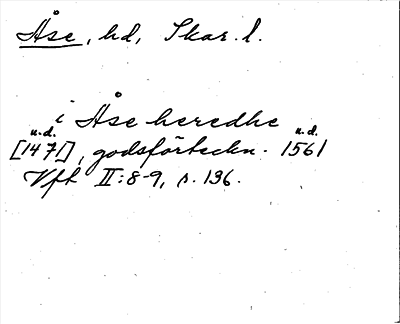 Åse, hd, Skar. l.
i Åse heredhe
u.d. u.d.
[1471], godsförteckn. 1561
Vft II:8-9, s. 136.